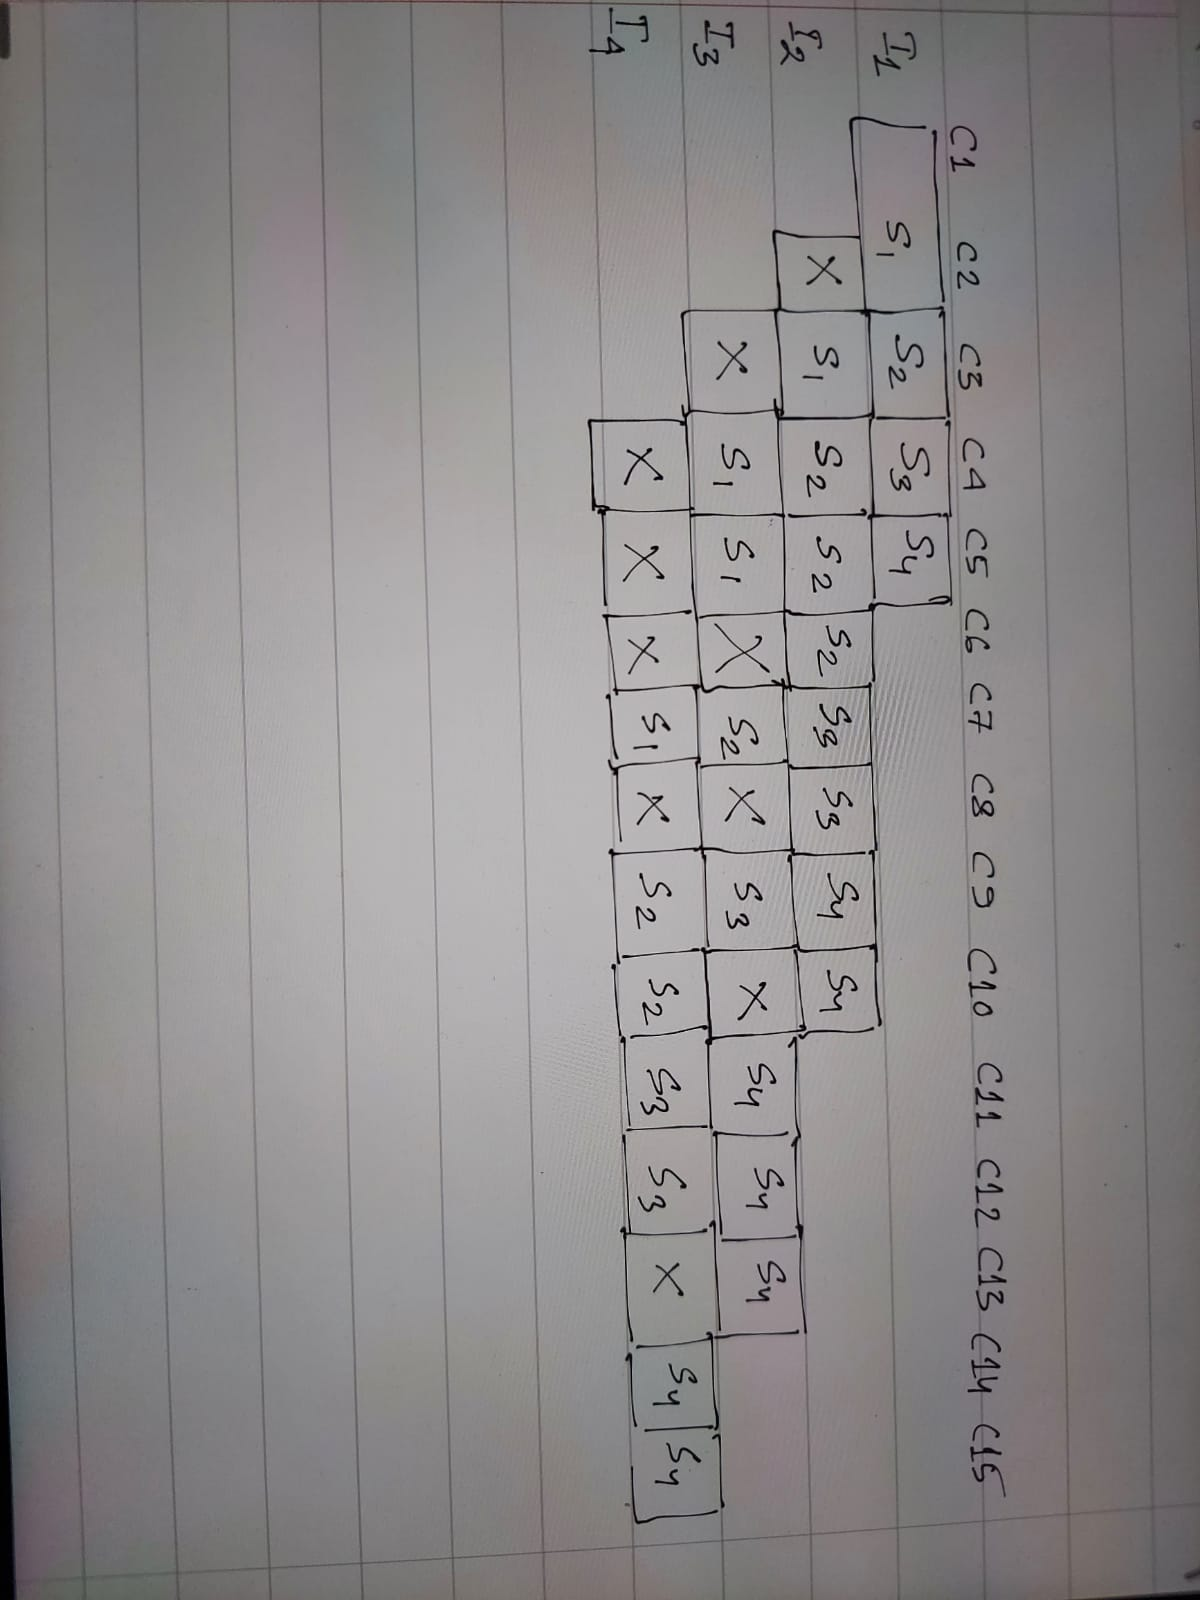 C1 C2 C3 C4 C5 C6 C7 C8 C9 C10 C11 C12 C13 C14 C15
I1 S1 S2 S3 S4
I2 X S1 S2 S2 S2 S3 S3 S4 S4
I3 X S1 S1 X S2 X S3 X S4 S4 S4
I4 X X X S1 X S2 S2 S3 S3 X S4 S4